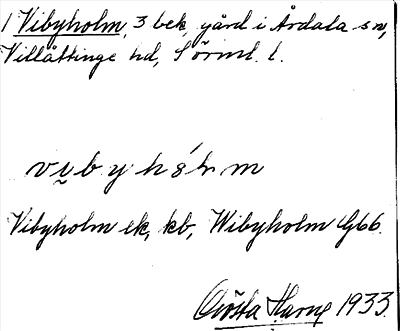 1 Vibyholm, 3 bek, gård i Årdala sn,
Villåttinge hd, Sörml. l.
Vibyholm ek, kb, Wibyholm G66.
Gösta Harne 1933.